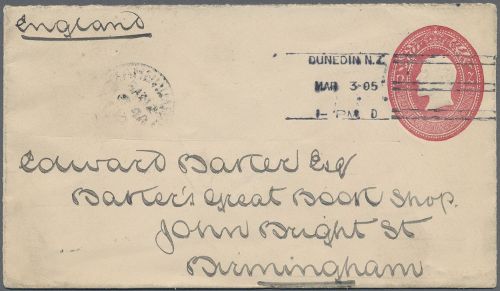 England
DUNEDIN N.Z
MAR 3-05
1 PM D
Edward Baker Esq
Baker's Great Book Shop.
John Bright St
Birmingham